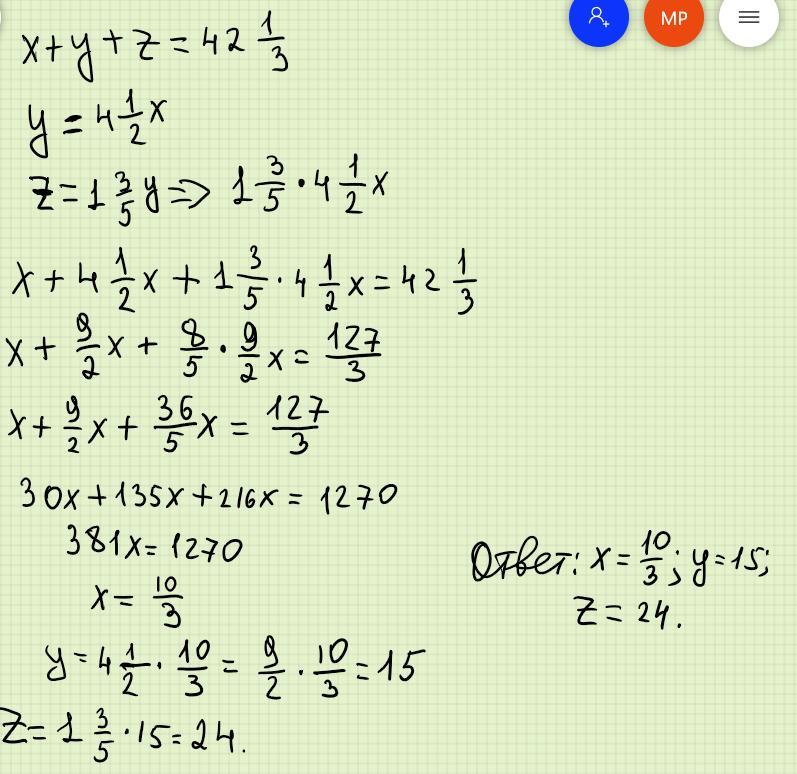 MP
x+y+z=42 1/3
y=4 1/2 x
z=1 3/5 y => 1 3/5 · 4 1/2 x
x + 4 1/2 x + 1 3/5 · 4 1/2 x = 42 1/3
x + 9/2 x + 8/5 · 9/2 x = 127/3
x + 9/2 x + 36/5 x = 127/3
30x+135x+216x = 1270
381x=1270
x= 10/3
y=4 1/2 · 10/3 = 9/2 · 10/3 =15
z= 1 3/5 ·15=24.
Ответ: x= 10/3; y=15;
z=24.